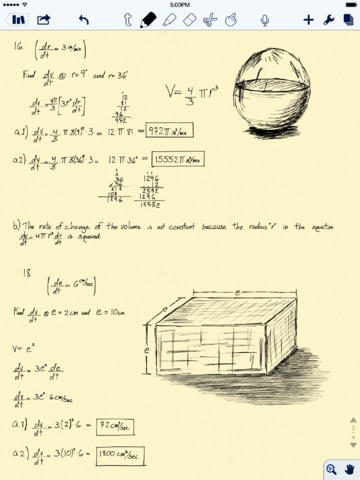 5:00PM
16. (dr/dt = 3 in/min)
Find dv/dt @ r=9" and r=36"
V= 4/3 πr³
dv/dt = 4π/3 [3r² dr/dt]
12
81
12
96
972
a.1) dv/dt = 4/3 π 3(9)² · 3 = 12 π 81 = 972π in³/min
a.2) dv/dt = 4/3 π 3(36)² · 3 = 12 π 36² = 15552π in³/min
36
1296
12
108
2592
1296
1296
15552
b) The rate of change of the volume is not constant because the radius "r" in the equation
dv/dt = 4πr² dr/dt is squared.
18
(de/dt = 6 cm/sec)
e
e
e
Find dv/dt @ e = 2cm and e = 10cm
V= e³
dv/dt = 3e² de/dt
dv/dt = 3e² 6 cm/sec
a.1) dv/dt = 3(2)² 6 = 72 cm/sec
a.2) dv/dt = 3(10)² 6 = 1800 cm³/sec